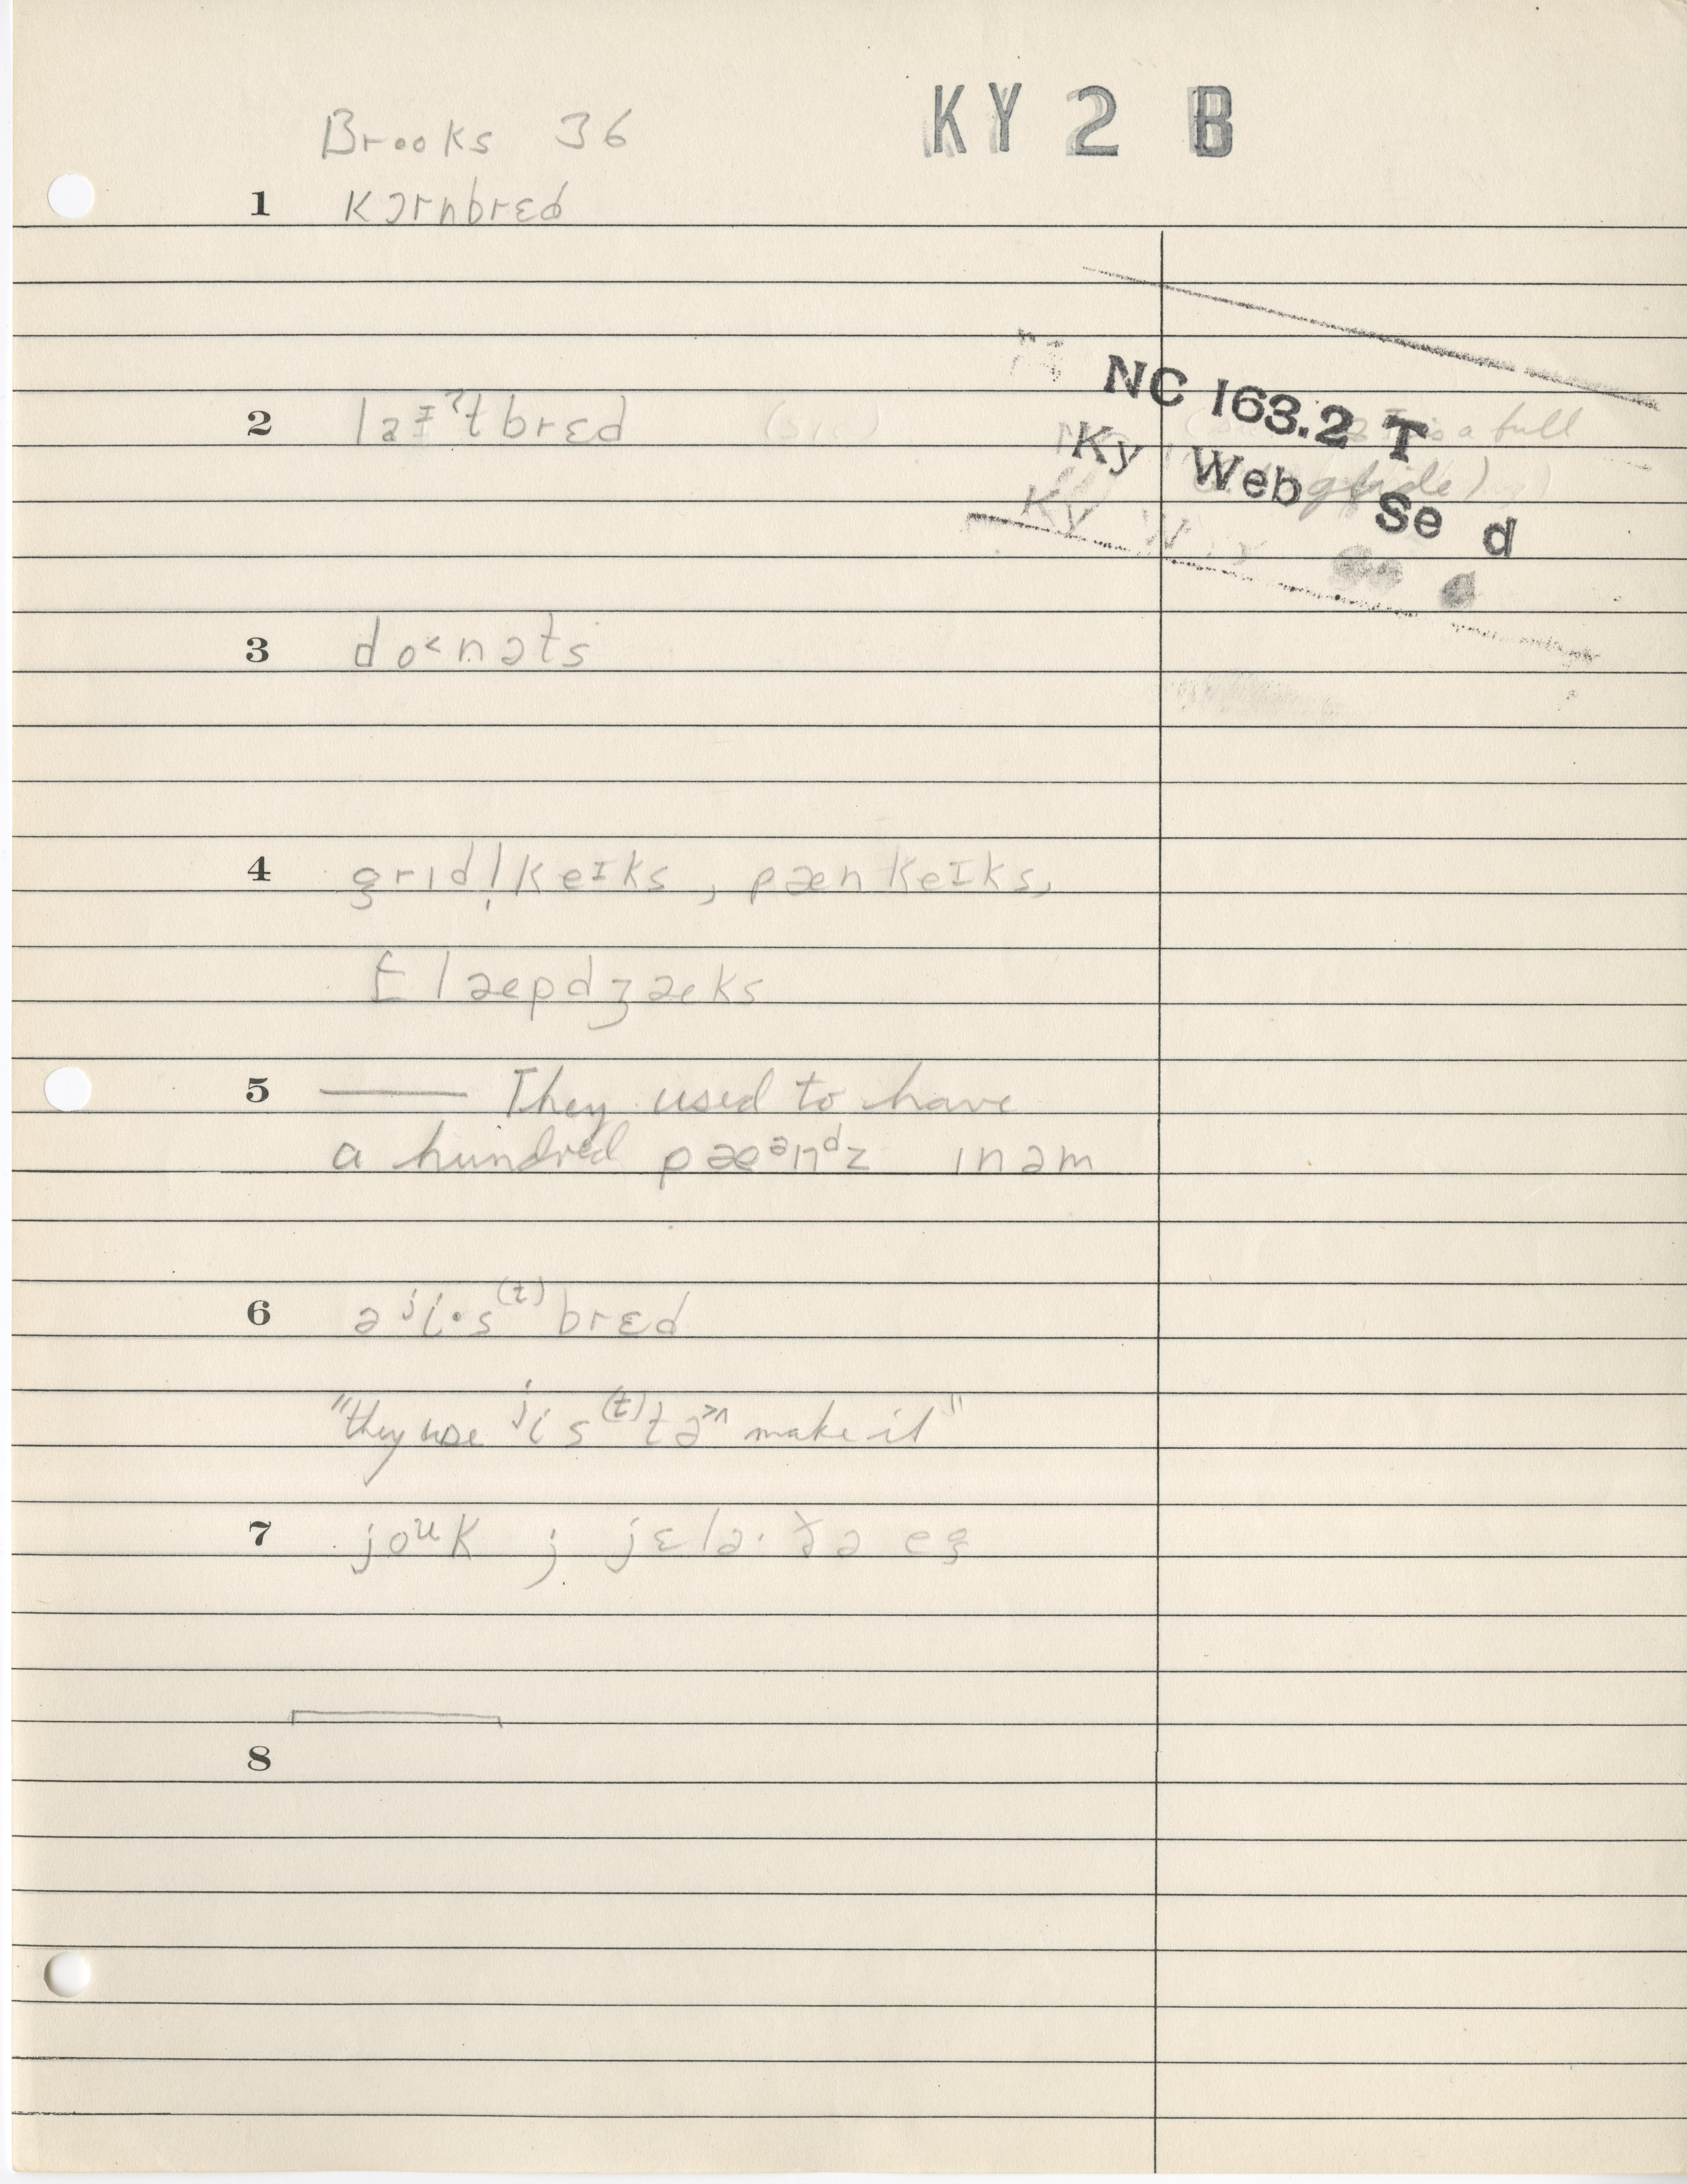 Brooks 36
KY 2 B
1 kɔrnbrɛd
NC 163.2 T
2 laɪˀtbrɛd (sic) is a full
Ky Web Se d
glide)
3 do˂nəts
4 grɪdl̩keɪks, pænkeɪks,
flæpdʒæks
5 —— They used to have
a hundred pæᵊnᵈz ɪnəm
6 ə ʲi·s⁽ᵗ⁾brɛd
"they use ʲis⁽ᵗ⁾tə˃˄ make it"
7 joᵘk ; jɛlə· eg
8